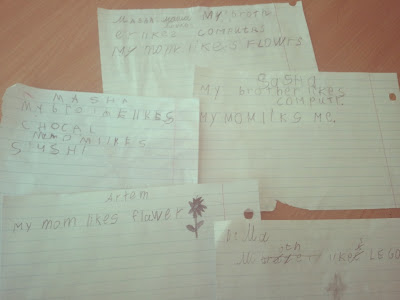 My broth
er likes computes
MY MOM LIKEIS FLOWRS
Sasha
My brother likes
compute.
MY MOM LIKS ME.
MASHA
My broTMELIKES
CHOCAL
MOMO MILKES
SUSHI
Artem
MY mom likes Flawer
LEGO